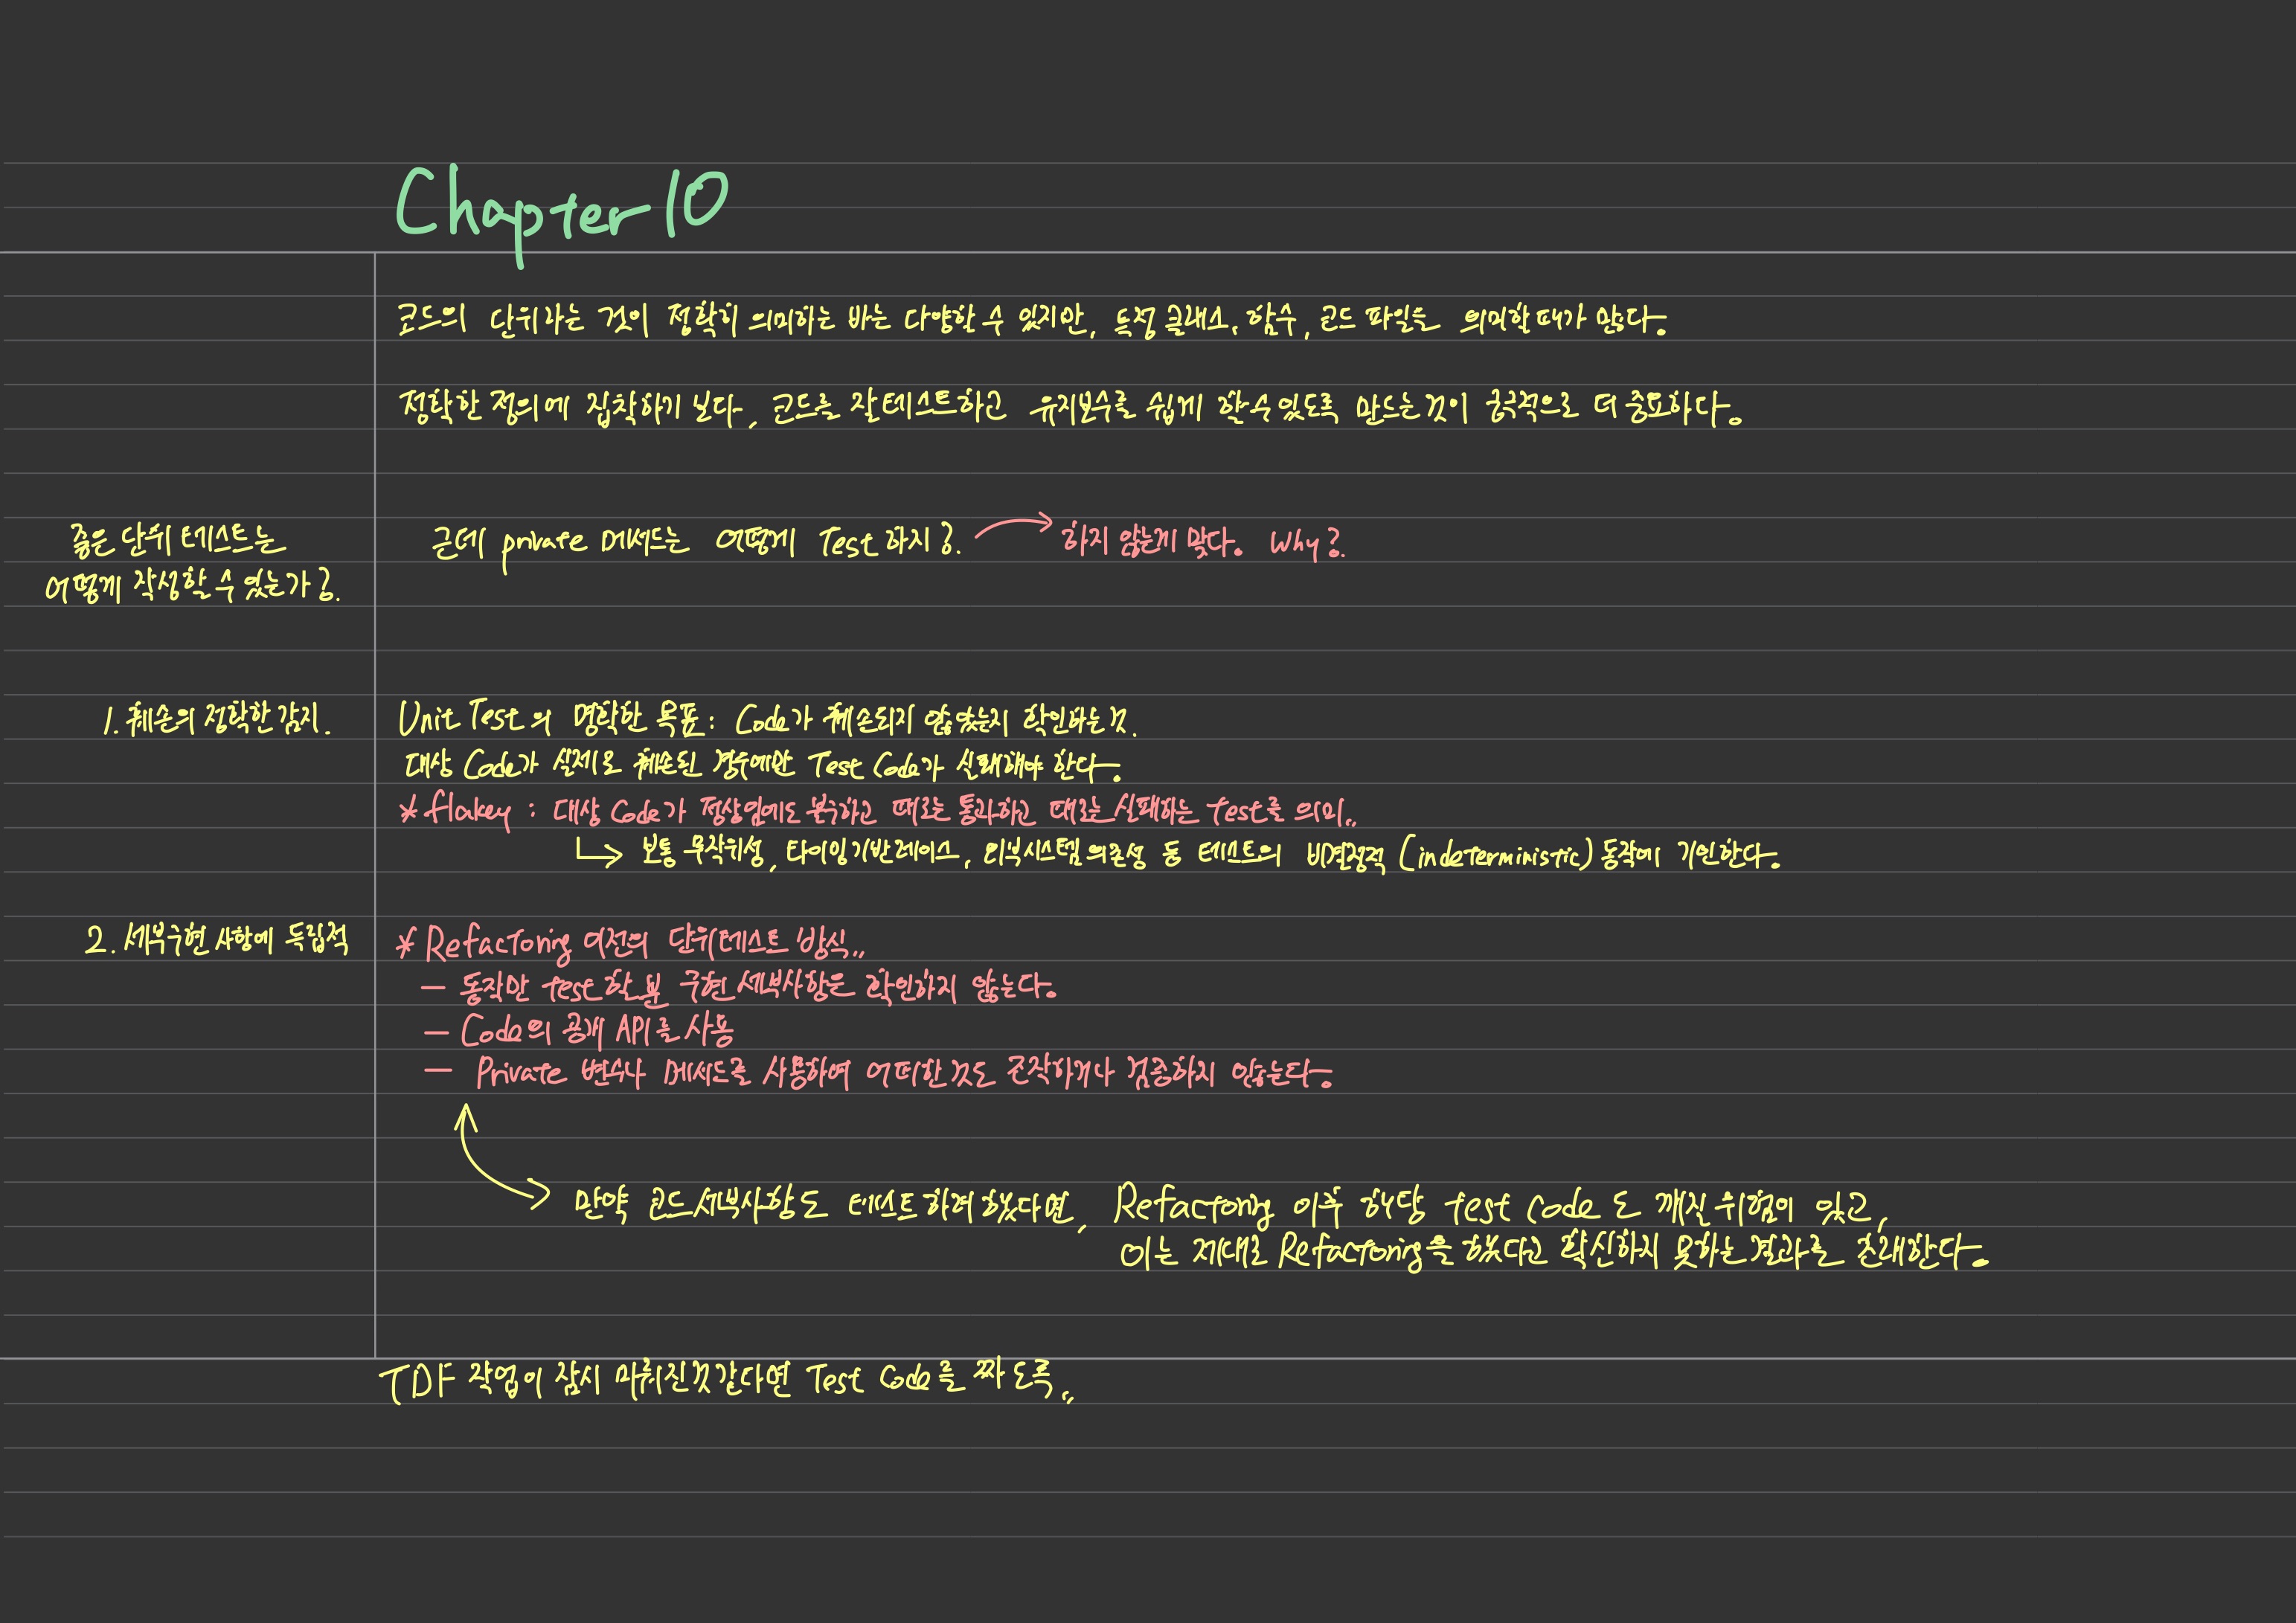 Chapter 10
코드의 단위라는 것이 정확히 의미하는 바는 다양할 수 있지만, 특정 클래스, 함수, 코드 파일을 의미할 때가 많다.
정확한 정의에 집착하기 보다, 코드를 잘 테스트하고 유지보수를 쉽게 할 수 있도록 만드는 것이 궁극적으로 더 중요하다.
좋은 단위 테스트는
어떻게 작성할 수 있는가?
근데 private 메서드는 어떻게 Test 하지?
하지 않는게 맞다. Why?
1. 훼손의 정확한 감지.
Unit Test의 명확한 목표: Code가 훼손되지 않았는지 확인하는 것.
대상 Code가 실제로 훼손된 경우에만 Test Code가 실패해야 한다.
* flakey : 대상 Code가 정상임에도 불구하고 때로는 통과하고 때로는 실패하는 Test를 의미..
보통 무작위성, 타이밍 기반 레이스, 외부 시스템 의존성 등 테스트의 비결정적 (indeterministic) 동작에 기인한다.
2. 세부 구현 사항에 독립적
* Refactoring 이전의 단위 테스트 방식..
- 동작만 test 할 뿐 구현 세부사항은 확인하지 않는다.
- Code의 공개 API를 사용
- Private 변수나 메서드를 사용하여 어떠한 것도 조작하거나 검증하지 않는다.
만약 코드 세부사항도 테스트하려 했다면, Refactoring 이후 해당 test code도 깨질 위험이 있고,
이는 제대로 Refactoring을 했다고 확신하지 못하는 결과를 초래한다.
TDF 작업이 잠시 마춰진것같다면 Test Code를 짜도록..